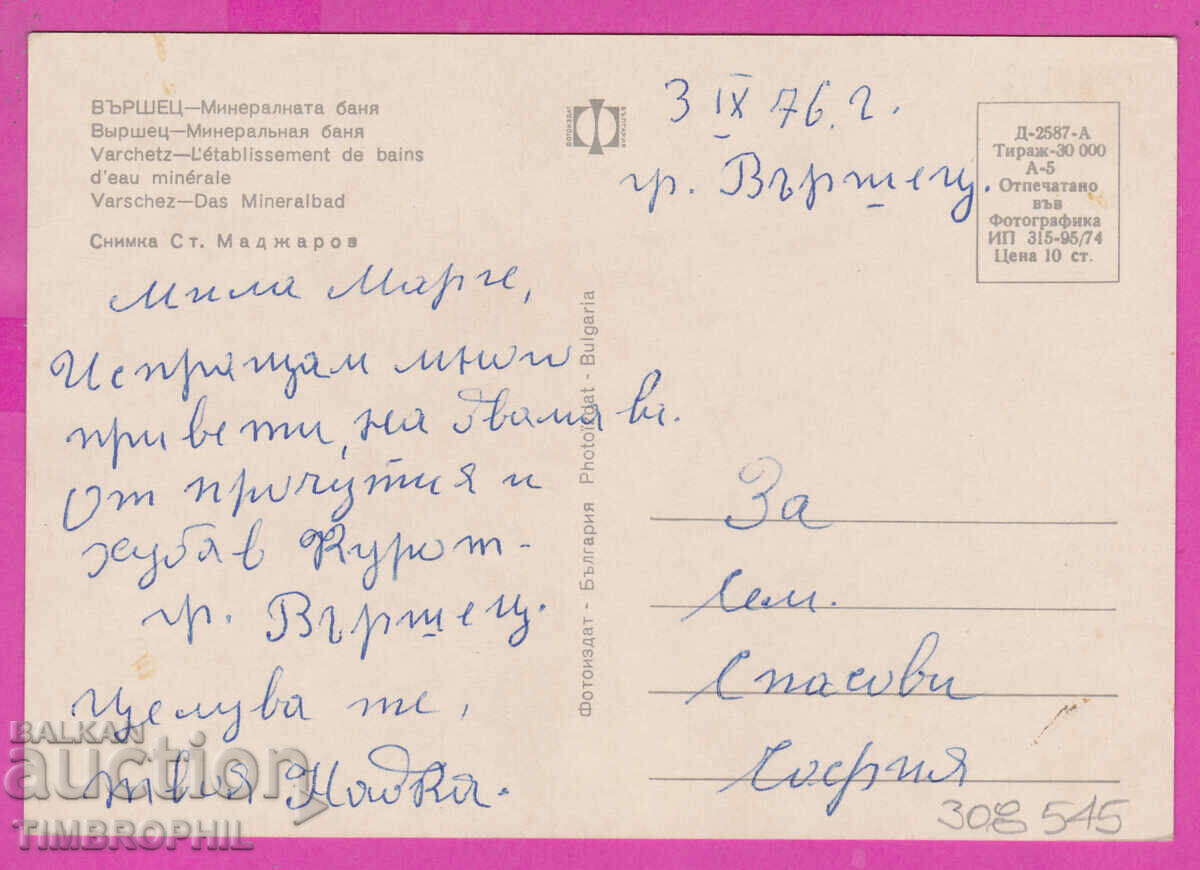 ВЪРШЕЦ—Минералната баня
Выршец—Минеральная баня
Varchetz—L'établissement de bains
d'eau minérale
Varschez—Das Mineralbad
Снимка Ст. Маджаров
ФОТОИЗДАТ
БЪЛГАРИЯ
3 IX 76 г.
гр. Вършец.
Д-2587-А
Тираж-30 000
А-5
Отпечатано
във
Фотографика
ИП 315-95/74
Цена 10 ст.
Мила Марче,
Изпращам много
привети, на двама ви.
От прочутия и
хубав Курот-
гр. Вършец.
Целува те,
твоя Надка.
Фотоиздат - България Photoïzdat - Bulgaria
За
Сем.
Спасови
София
308545
BALKAN
auction
TIMBROPHIL